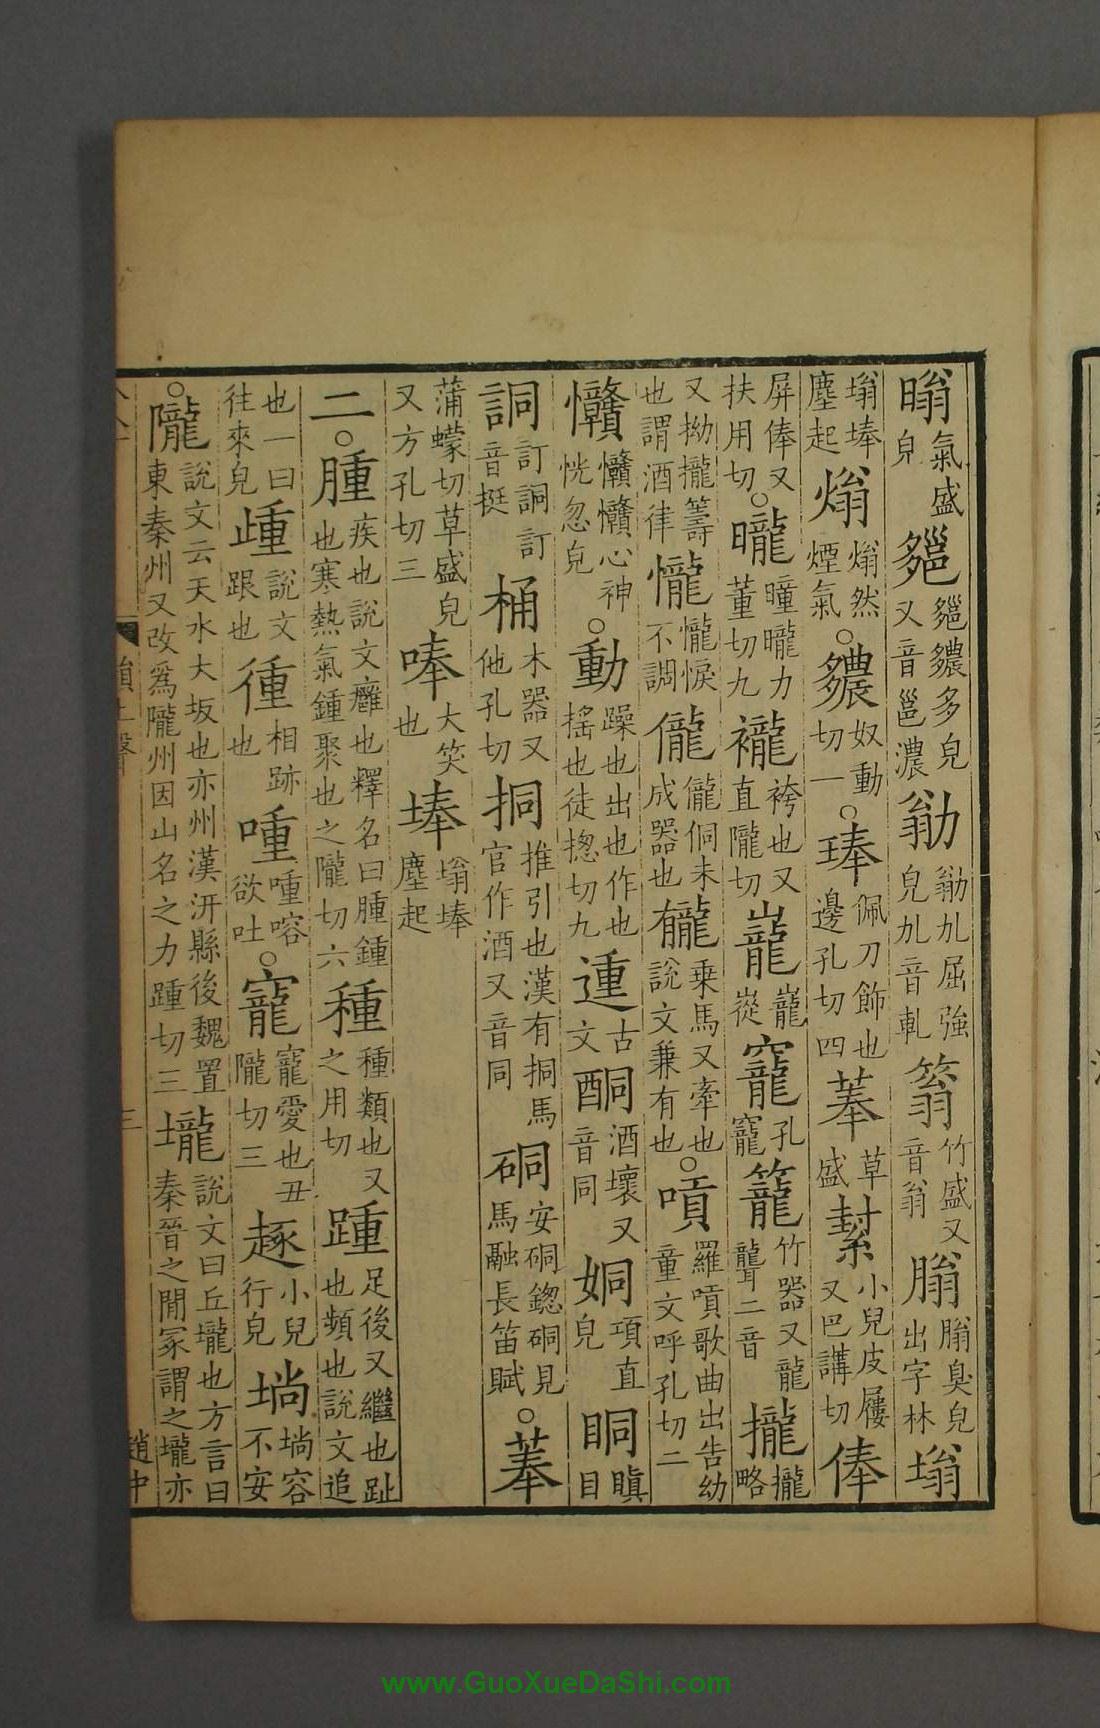 暡氣盛皃䰒䰒齈多皃又音邕濃勜勜劜屈強皃劜音軋蓊竹盛又音翁腢腢臭皃出字林塕
塕埲塵起㷙㷙然煙氣○繷奴動切一○琫佩刀飾也邊孔切四菶草盛㨍小兒皮屨又巴講切俸
屏俸又扶用切○曨曈曨力董切九襱袴也又直隴切巃巃嵸竉孔竉籠竹器又龍聾二音攏攏略
又拗攏籌也謂酒律㦕㦕悷不調儱儱侗未成器也𪚕乗馬又牽也說文兼有也○嗊羅嗊歌曲出告幼童文呼孔切二
戇戇戇心神恍忽皃○動躁也出也作也搖也徒揔切九運古文酮酒壞又音同姛項直皃眮瞋目
詷訂詷訂音挺桶木器又他孔切挏推引也漢有挏馬官作酒又音同硐安硐鍯硐見馬融長笛賦○菶
蒲蠓切草盛皃又方孔切三唪大笑也埲塕埲塵起
二○腫疾也說文癰也釋名曰腫鍾也寒熱氣鍾聚也之隴切六種種類也又之用切踵足後又繼也趾也頻也說文追
也一曰往來皃歱說文跟也徸相跡也喠喠㗋欲吐○寵寵愛也丑隴切三䢢小兒行皃㙙㙙容不安
○隴說文云天水大坂也亦州漢汧縣後魏置東秦州又改爲隴州因山名之力踵切三壠說文曰丘壠也方言曰秦晉之閒冢謂之壠亦
www.GuoXueDaShi.com